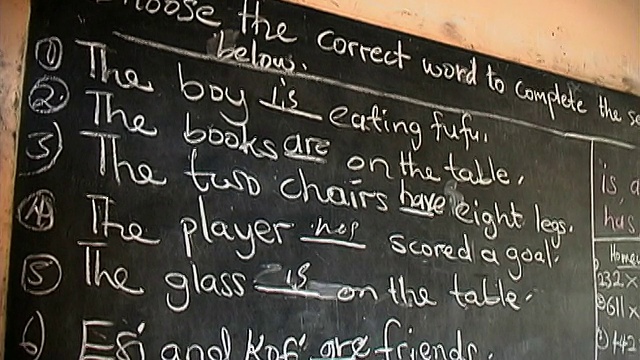 the correct word to complete the
below.
1 The boy is eating fufu.
2 The books are on the table.
3) The two chairs have eight legs.
4 The player has scored a goal.
5 The glass is on the table.
6) Esi and Kofi are friends.
is
has
232 x
611 x